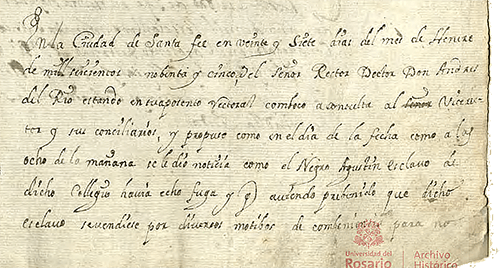 En la Ciudad de Santa fee en veinte y Siete dias del mes de Henero
de mill seiscientos nobenta y cinco, el Señor Rector Doctor Don Andres
del Rio estando en su aposento Rectoral comboco a consulta al señor Vicerec-
tor y sus conciliarios, y propuso como en el dia de la fecha como a las
ocho de la mañana se le dio noticia como el Negro Agustin esclavo de
dicho Collegio havia echo fuga y q auiendo prebenido que dicho
esclavo se vendiese por diversos motibos de combeniencia para no
Universidad del
Rosario
Archivo
Histórico